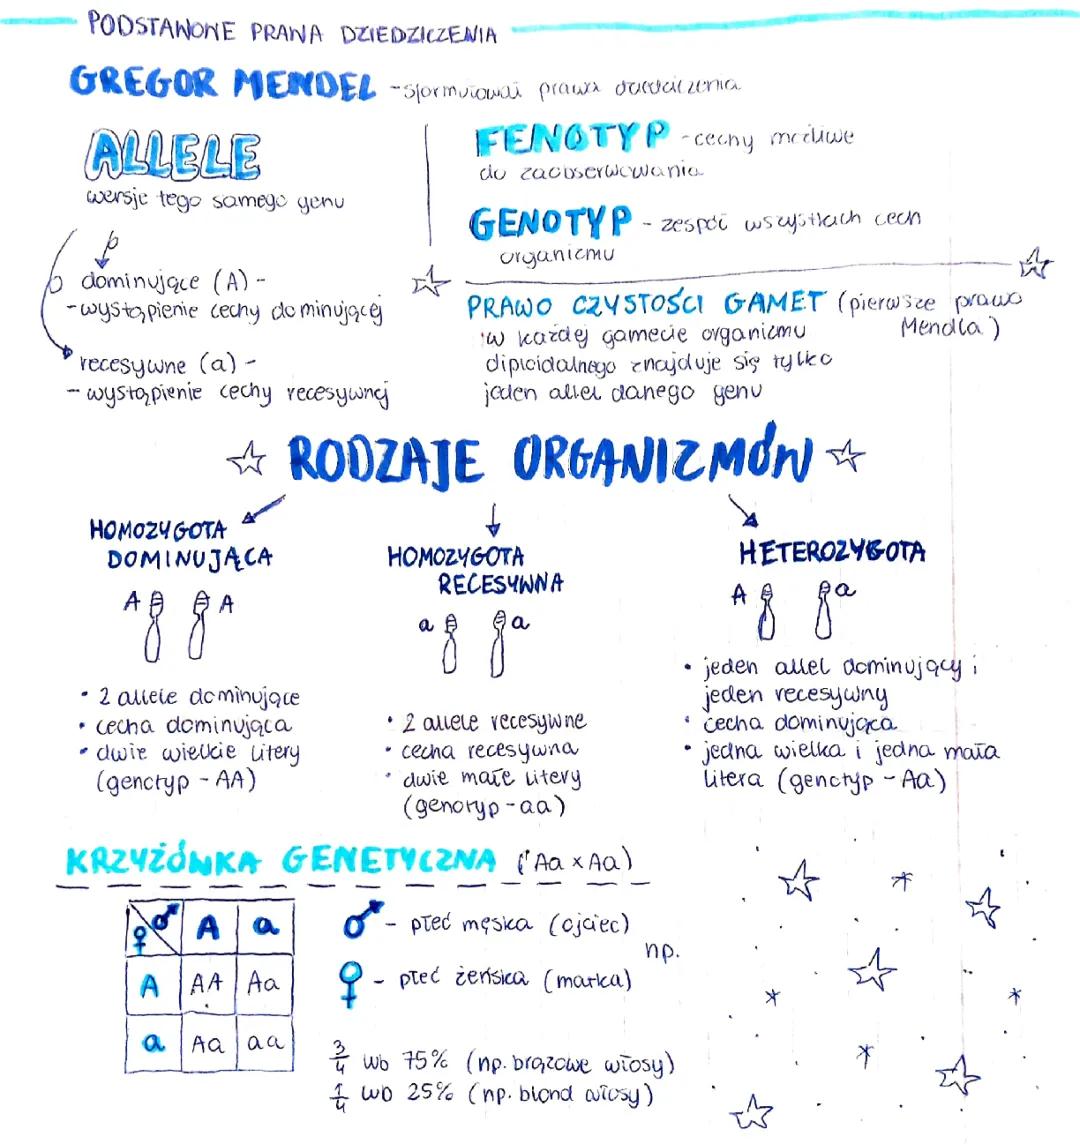 PODSTAWOWE PRAWA DZIEDZICZENIA
GREGOR MENDEL - sformułował prawa dziedziczenia
ALLELE
wersje tego samego genu
dominujące (A) -
- wystąpienie cechy dominującej
recesywne (a) -
- wystąpienie cechy recesywnej
FENOTYP - cechy możliwe
do zaobserwowania
GENOTYP - zespół wszystkich cech
organizmu
PRAWO CZYSTOŚCI GAMET (pierwsze prawo
Mendla)
w każdej gamecie organizmu
diploidalnego znajduje się tylko
jeden allel danego genu
RODZAJE ORGANIZMÓW
HOMOZYGOTA
DOMINUJĄCA
A A
• 2 allele dominujące
• cecha dominująca
• dwie wielkie litery
(genotyp - AA)
HOMOZYGOTA
RECESYWNA
a a
• 2 allele recesywne
• cecha recesywna
• dwie małe litery
(genotyp - aa)
HETEROZYGOTA
A a
• jeden allel dominujący i
jeden recesywny
• cecha dominująca
• jedna wielka i jedna mała
litera (genotyp - Aa)
KRZYŻÓWKA GENETYCZNA (Aa x Aa)
♀ ♂ A a
A AA Aa
a Aa aa
♂ - płeć męska (ojciec)
np.
♀ - płeć żeńska (matka)
3/4 wb 75% (np. brązowe włosy)
1/4 wb 25% (np. blond włosy)